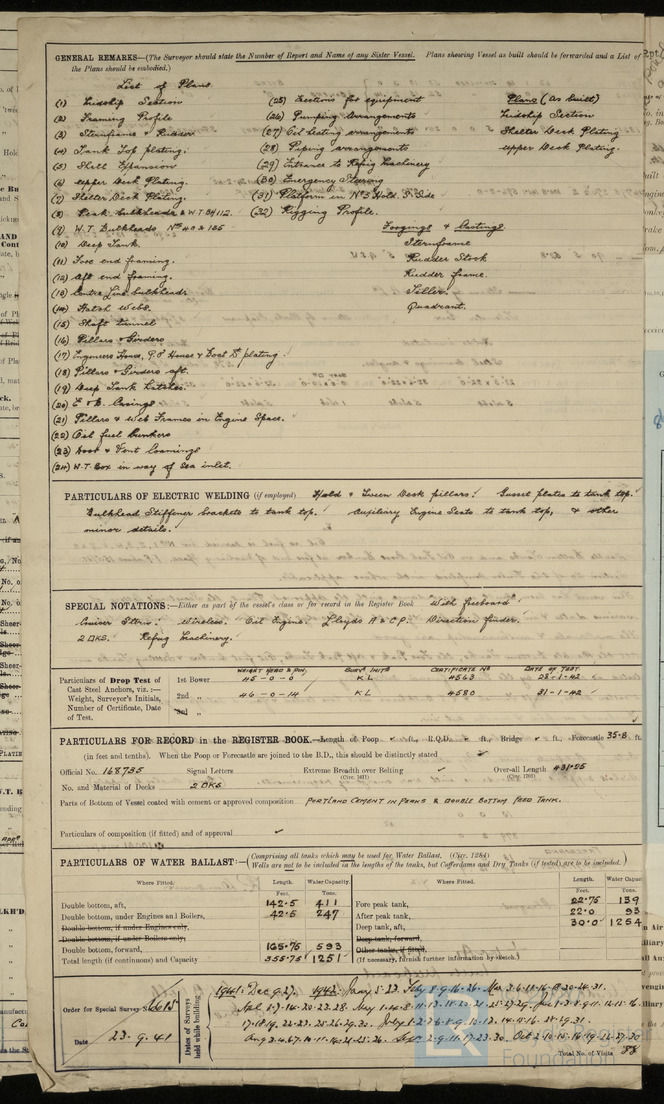 GENERAL REMARKS—(The Surveyor should state the Number of Report and Name of any Sister Vessel. Plans showing Vessel as built should be forwarded and a List of
the Plans should be embodied.)
List of Plans
(1) Midship Section
(2) Framing Profile
(3) Sternframe & Rudder
(4) Tank Top plating.
(5) Shell Expansion
(6) Upper Deck Plating.
(7) Shelter Deck Plating.
(8) Peak Bulkheads & W.T. BH 112.
(9) W.T. Bulkheads Nos 40 & 135
(10) Deep Tank.
(11) Fore end framing.
(12) Aft end framing.
(13) Centre Line bulkheads
(14) Hatch Webs.
(15) Shaft tunnel
(16) Pillars & Girders
(17) Engineers House, P.O House & Boat Dk plating.
(18) Pillars & Girders aft.
(19) Deep Tank hatches.
(20) E & B. Casings
(21) Pillars & Web Frames in Engine Space.
(22) Oil fuel bunkers
(23) Door & Vent Coamings
(24) W.T. Box in way of Sea inlet.
(25) Sections for equipment
(26) Pumping Arrangements
(27) Oil heating arrangements
(28) Piping arrangements
(29) Entrance to Refrig Machinery
(30) Emergency Steering
(31) Platform in No 3 Hold. P. Side
(32) Rigging Profile.
Plans (as built)
Midship Section
Shelter Deck Plating
Upper Deck Plating.
Forgings & Castings.
Sternframe
Rudder Stock
Rudder frame.
Tiller.
Quadrant.
PARTICULARS OF ELECTRIC WELDING (if employed) Hold & Tween Deck pillars. Gusset plates to tank top.
Bulkhead Stiffener brackets to tank top. Auxiliary Engine Seats to tank top, & other
minor details.
SPECIAL NOTATIONS:—Either as part of the vessel's class or for record in the Register Book With freeboard
Cruiser Stern. Wireless. Oil Engine. Lloyds A & C P. Direction finder.
2 DKS. Refrig Machinery.
WEIGHT HEAD & PIN. SURV: INITS CERTIFICATE No DATE OF TEST.
Particulars of Drop Test of
Cast Steel Anchors, viz.:—
Weight, Surveyor's Initials,
Number of Certificate, Date
of Test.
1st Bower 45-0-0 K L 4563 28-1-42
2nd „ 46-0-14 K L 4580 31-1-42
3rd „
PARTICULARS FOR RECORD in the REGISTER BOOK.—Length of Poop ft., R.Q.D. ft., Bridge ft., Forecastle 35.8 ft.
(in feet and tenths). When the Poop or Forecastle are joined to the B.D., this should be distinctly stated
Official No. 168735 Signal Letters Extreme Breadth over Belting (Circ. 1457) Over-all Length 431.75 (Circ. 1703)
No. and Material of Decks 2 DKS
Parts of Bottom of Vessel coated with cement or approved composition PORTLAND CEMENT IN PEAKS & DOUBLE BOTTOM FEED TANK.
Particulars of composition (if fitted) and of approval
PARTICULARS OF WATER BALLAST:—(Comprising all tanks which may be used for Water Ballast. (Circ. 1284)
Wells are not to be included in the lengths of the tanks, but Cofferdams and Dry Tanks (if tested) are to be included.)
Where Fitted. Length. Water Capacity. Where Fitted. Length. Water Capacity.
Feet. Tons. Feet. Tons.
Double bottom, aft, 142.5 411 Fore peak tank, 22.75 139
Double bottom, under Engines and Boilers, 42.5 247 After peak tank, 22.0 93
Double bottom, if under Engines only, Deep tank, aft, 30.0 1254
Double bottom, if under Boilers only, Deep tank, forward,
Double bottom, forward, 165.75 593 Other tanks, if fitted,
Total length (if continuous) and Capacity 355.75 1251 (If necessary, furnish further information by sketch.)
Order for Special Survey 6615
Date 23.9.41
Dates of Surveys held while building
1941: Dec 9.27. 1942: Jany 5.23. Feby 8.9.16.26. Mar 3.6.18.16.18.20.24.31.
Apl 1.7.14.20.23.28. May 1.4.8.11.13.18.20.21.25.27.29. Jun 1.3.8.9.11.12.15.16.
17.18.19.22.23.25.26.29.30. July 1.2.3.6.8.9.10.13.14.15.16.28.29.31.
Aug 3.4.6.7.10.11.16.21.25.26. Sept 2.9.11.17.23.30. Oct 2.10.15.16.19.22.27.30
Total No. of Visits 88
Lloyd's Register
Foundation